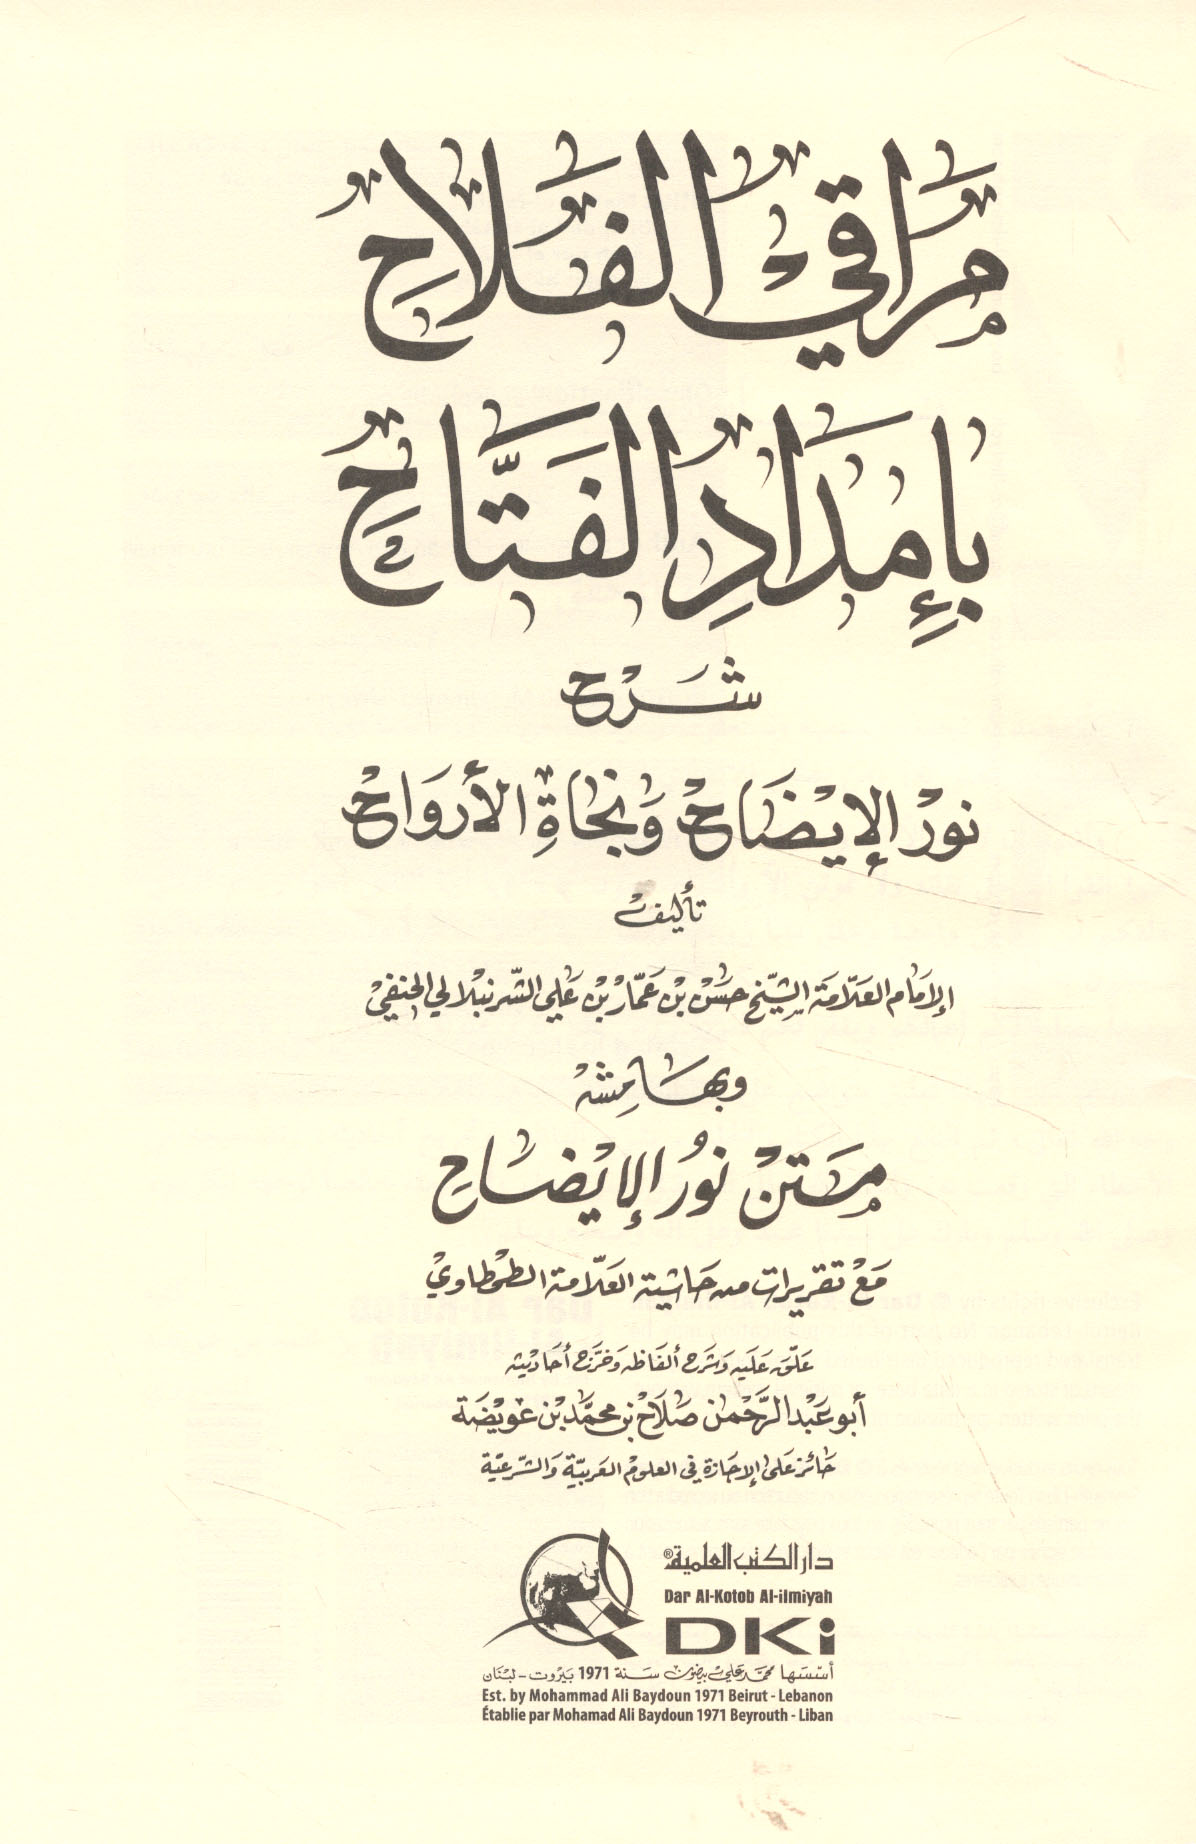 مَرَاقِي الفَلَاحِ
بِإِمْدَادِ الفَتَّاحِ
شَرْح
نُورُ الإِيْضَاحْ وَنَجَاةِ الأَرْوَاحْ
تأليف
الإمَام العَلّامَة الشيّخ حَسَنْ بْن عَمّار بْن عَلي الشّرنبلالي الحنفيْ
وبهَامِشْه
مَتنْ نوُر الإيْضاحِ
مَعْ تقريرات من حَاشية العَلّامة الطحْطاويْ
عَلّق عَليه وَشرَح ألفَاظه وَخرّج أحَاديثه
أبو عَبْد الرَّحْمن صَلَاح بْن محمَّد بْن عَويْضَة
حَائز عَلى الإجَازة في العلومْ العَربيّة وَالشّرعيّة
دار الكتب العلمية®
Dar Al-Kotob Al-ilmiyah
DKi
أسّسَها محمّد عَلي بيضون سَنة 1971 بَيرُوت - لبْنَان
Est. by Mohammad Ali Baydoun 1971 Beirut - Lebanon
Établie par Mohamad Ali Baydoun 1971 Beyrouth - Liban